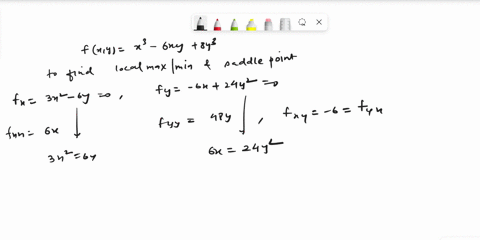 f(x,y) = x³ - 6xy + 8y³
to find local max/min & saddle point
fx = 3x² - 6y = 0, fy = -6x + 24y² = 0
fxx = 6x fyy = 48y, fxy = -6 = fyx
3x² = 6y 6x = 24y²